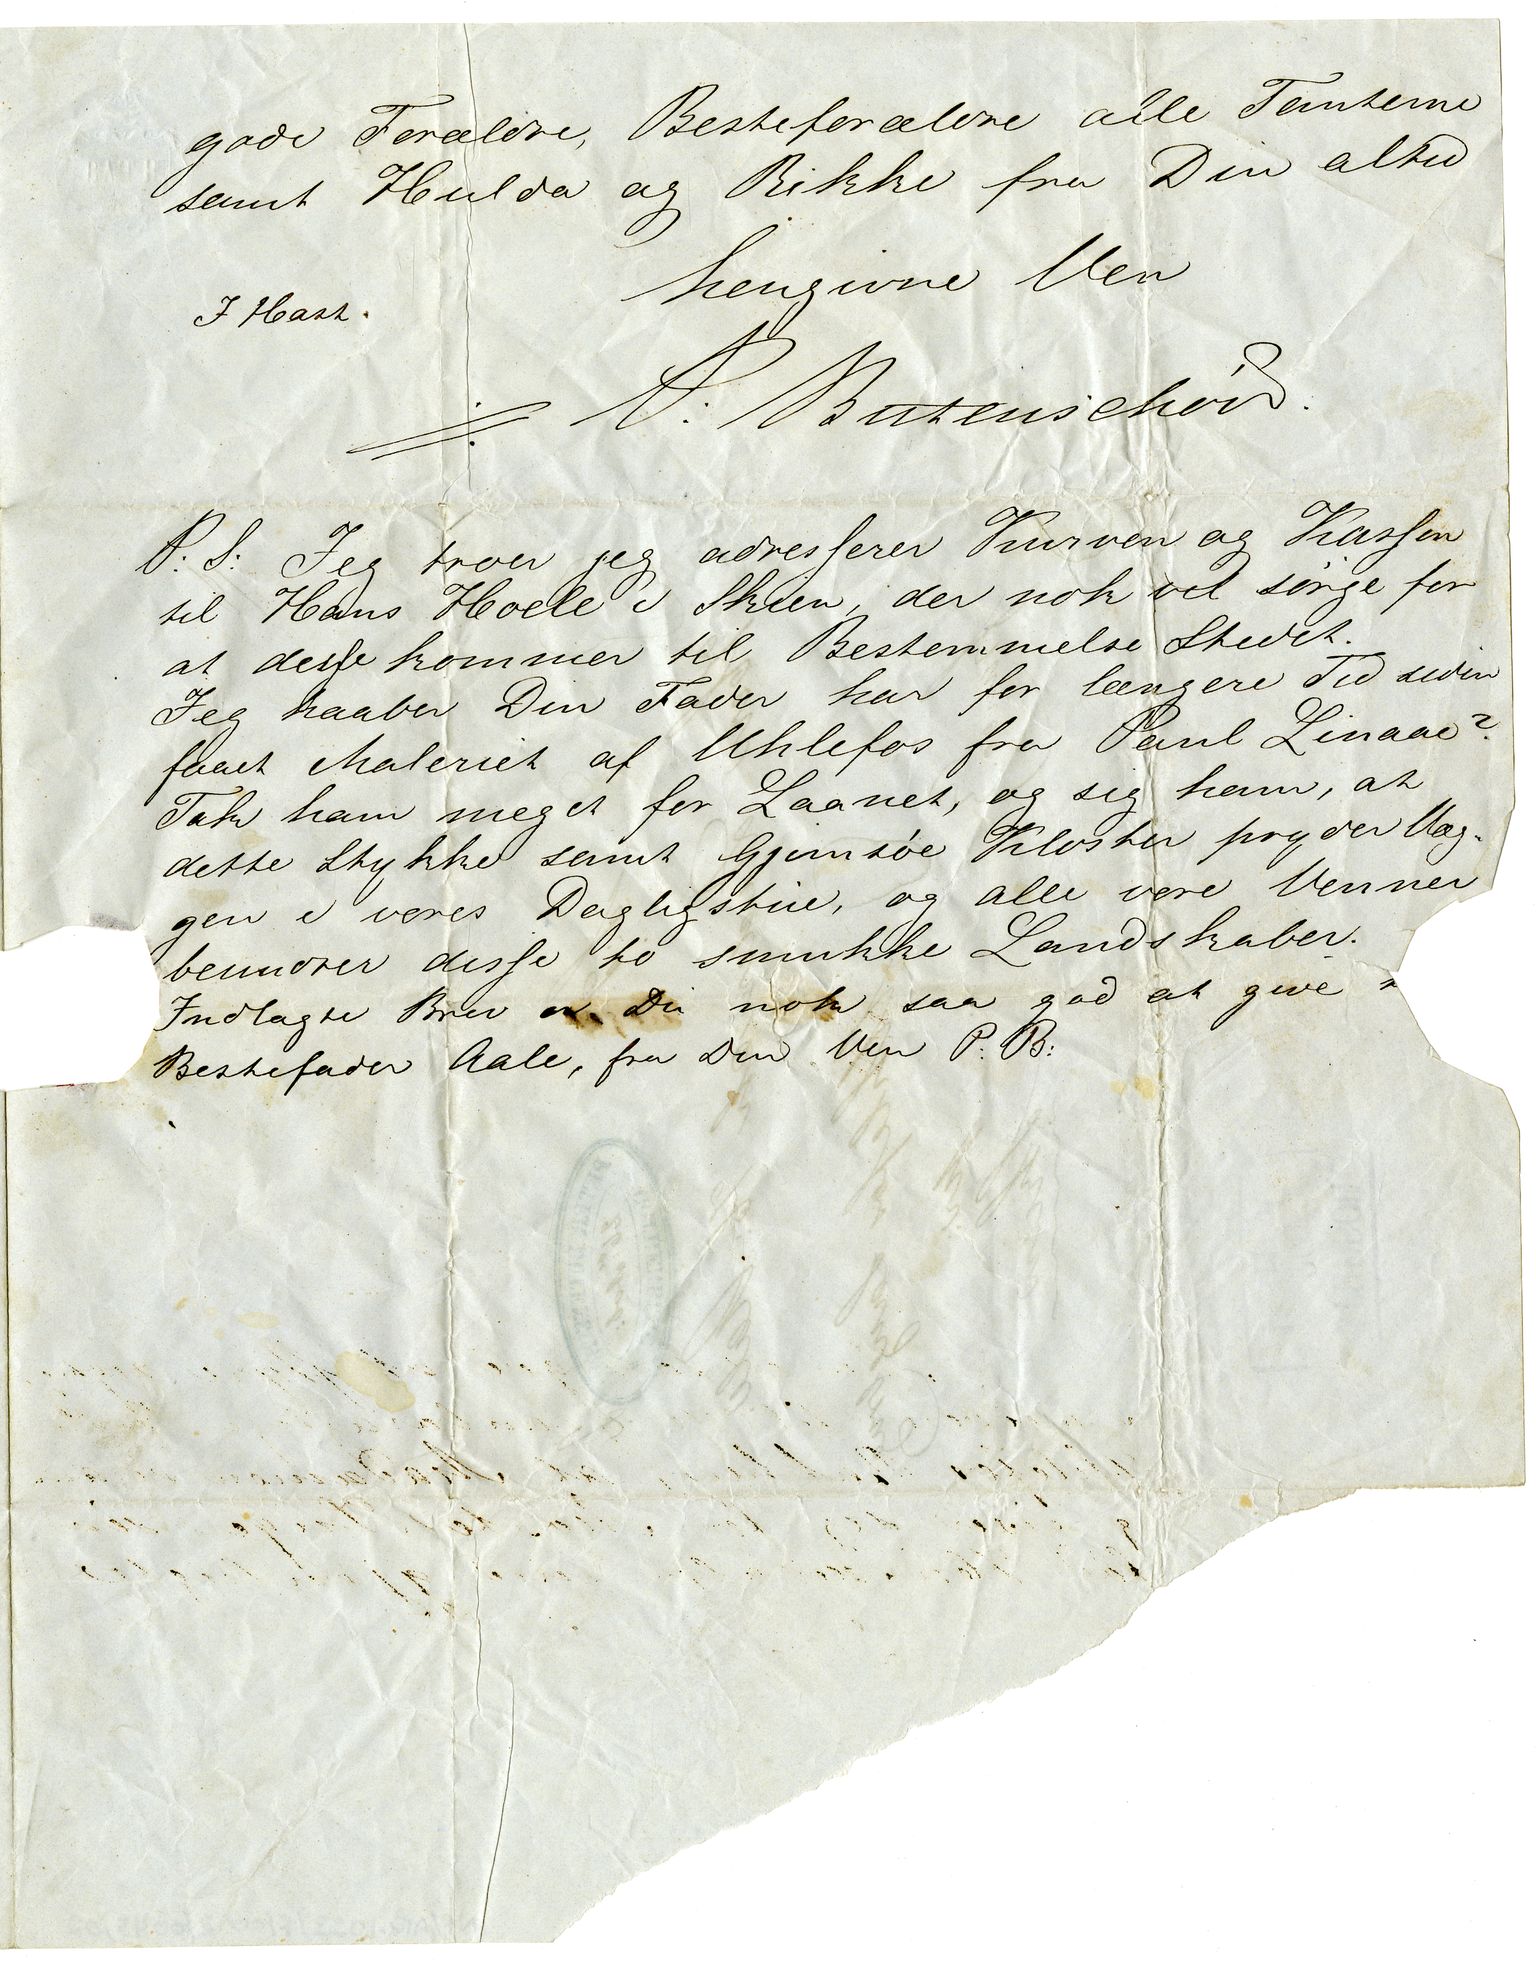 gode Forældre, Besteforældre alle Tanterne
samt Hulda og Rikke fra Din altid
hengivne Ven
I Hast.
P: Butenschön.
P: S: Jeg troer jeg adresserer Kurven og Kassen
til Hans Hoell i Skien, der nok vil sörge for
at disse kommer til Bestemmelse Stedet.
Jeg haaber Din Fader har for længere Tid siden
faaet Maleriet af Uhlefos fra Paul Linaae?
Tak ham meget for Laanet, og sig ham, at
dette Stykke samt Gjemsöe Kloster pryder Væg-
gen i vores Dagligstue, og alle vore Venner
beundrer disse to smukke Landskaber.
Indlagte Brev er Du nok saa god at give
Bestefader Aale, fra Din Ven P: B: